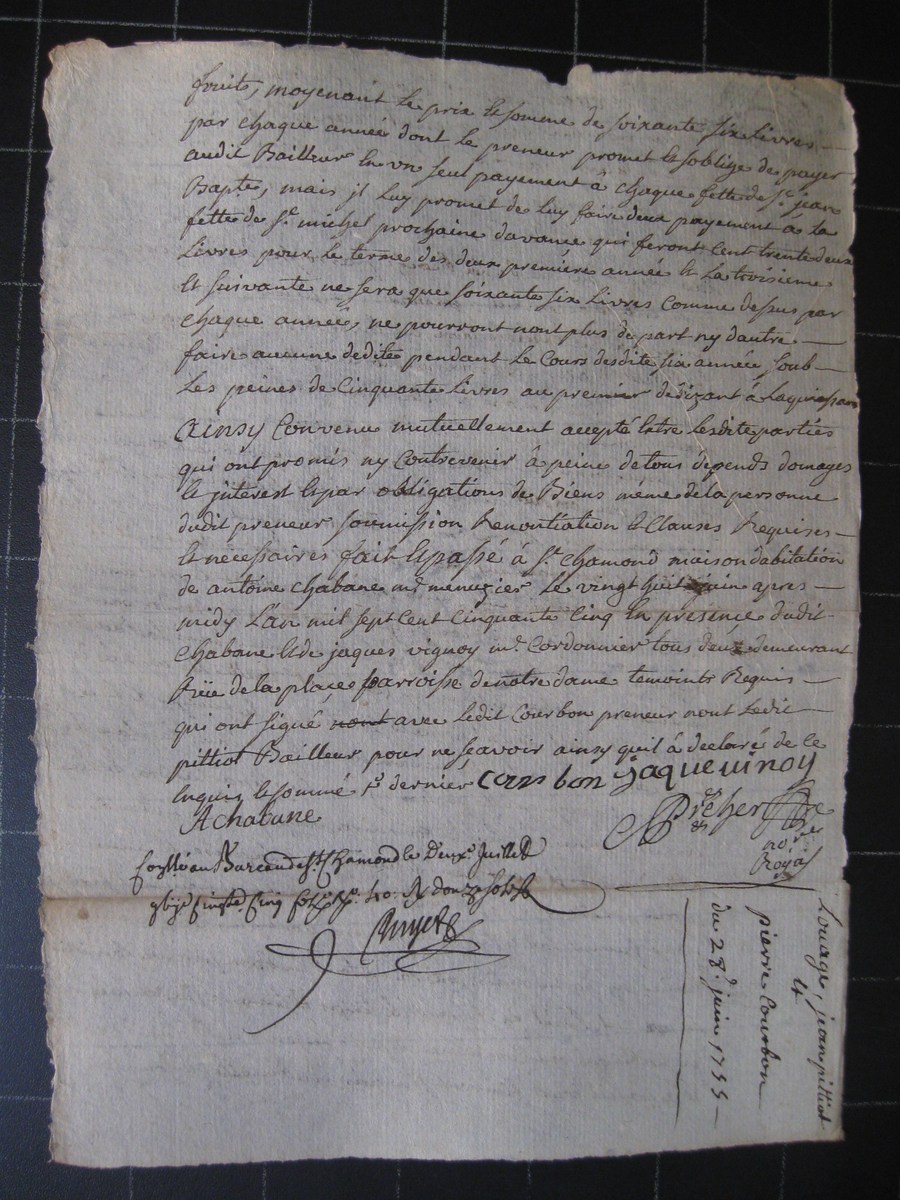 fruits, moyenant le prix et somme de soixante six livres
par chaque année dont le preneur promet et s'oblige de payer
audit Bailleur en un seul payement à chaque fette de St. jean
Bapte, mais il luy promet de luy faire deux payement á la
fette de St. michel prochaine davance qui feront Cent trente deux
Livres pour le terme des deux première année et la troisieme
et suivante ne sera que soixante six Livres comme desus par
chaque année, ne pourront nont plus de part ny dautre
faire aucune dedite pendant le Cours desdite six année, soub
Les peines de Cinquante Livres au premier dédizant
Ainsy Convenu mutuellement accepté Entre lesdite parties
qui ont promis ny Contrevenir à peine de tous depends domages
et jnterest et par obligations de Biens même de la personne
dudit preneur soumission Renontiation et Clauses Requises
et nécessaires fait et passé à St. chamond maison dabitation
de antoine chabane md. menuzier Le vingt huit juin apres
midy L'an mil sept Cent Cinquante Cinq En presence dudit
Chabane et de jaques vignoy md. Cordonnier tous deux demeurant
Rüe de la place parroisse de notre dame temoints Requis
qui ont signé nont avec ledit Courbon preneur nont Ledit
pittiot Bailleur pour ne scavoir ainsy quil à declaré de ce
Enquis et sommé dernier Cour bon jaque uinoy
A chabane
no re
Royal
au Bureau de St. Chamond le Deuxe. Juillet
Cinq douze sols
Louage, jean pittiot
a
pierre Courbon
du 28e. juin 1755